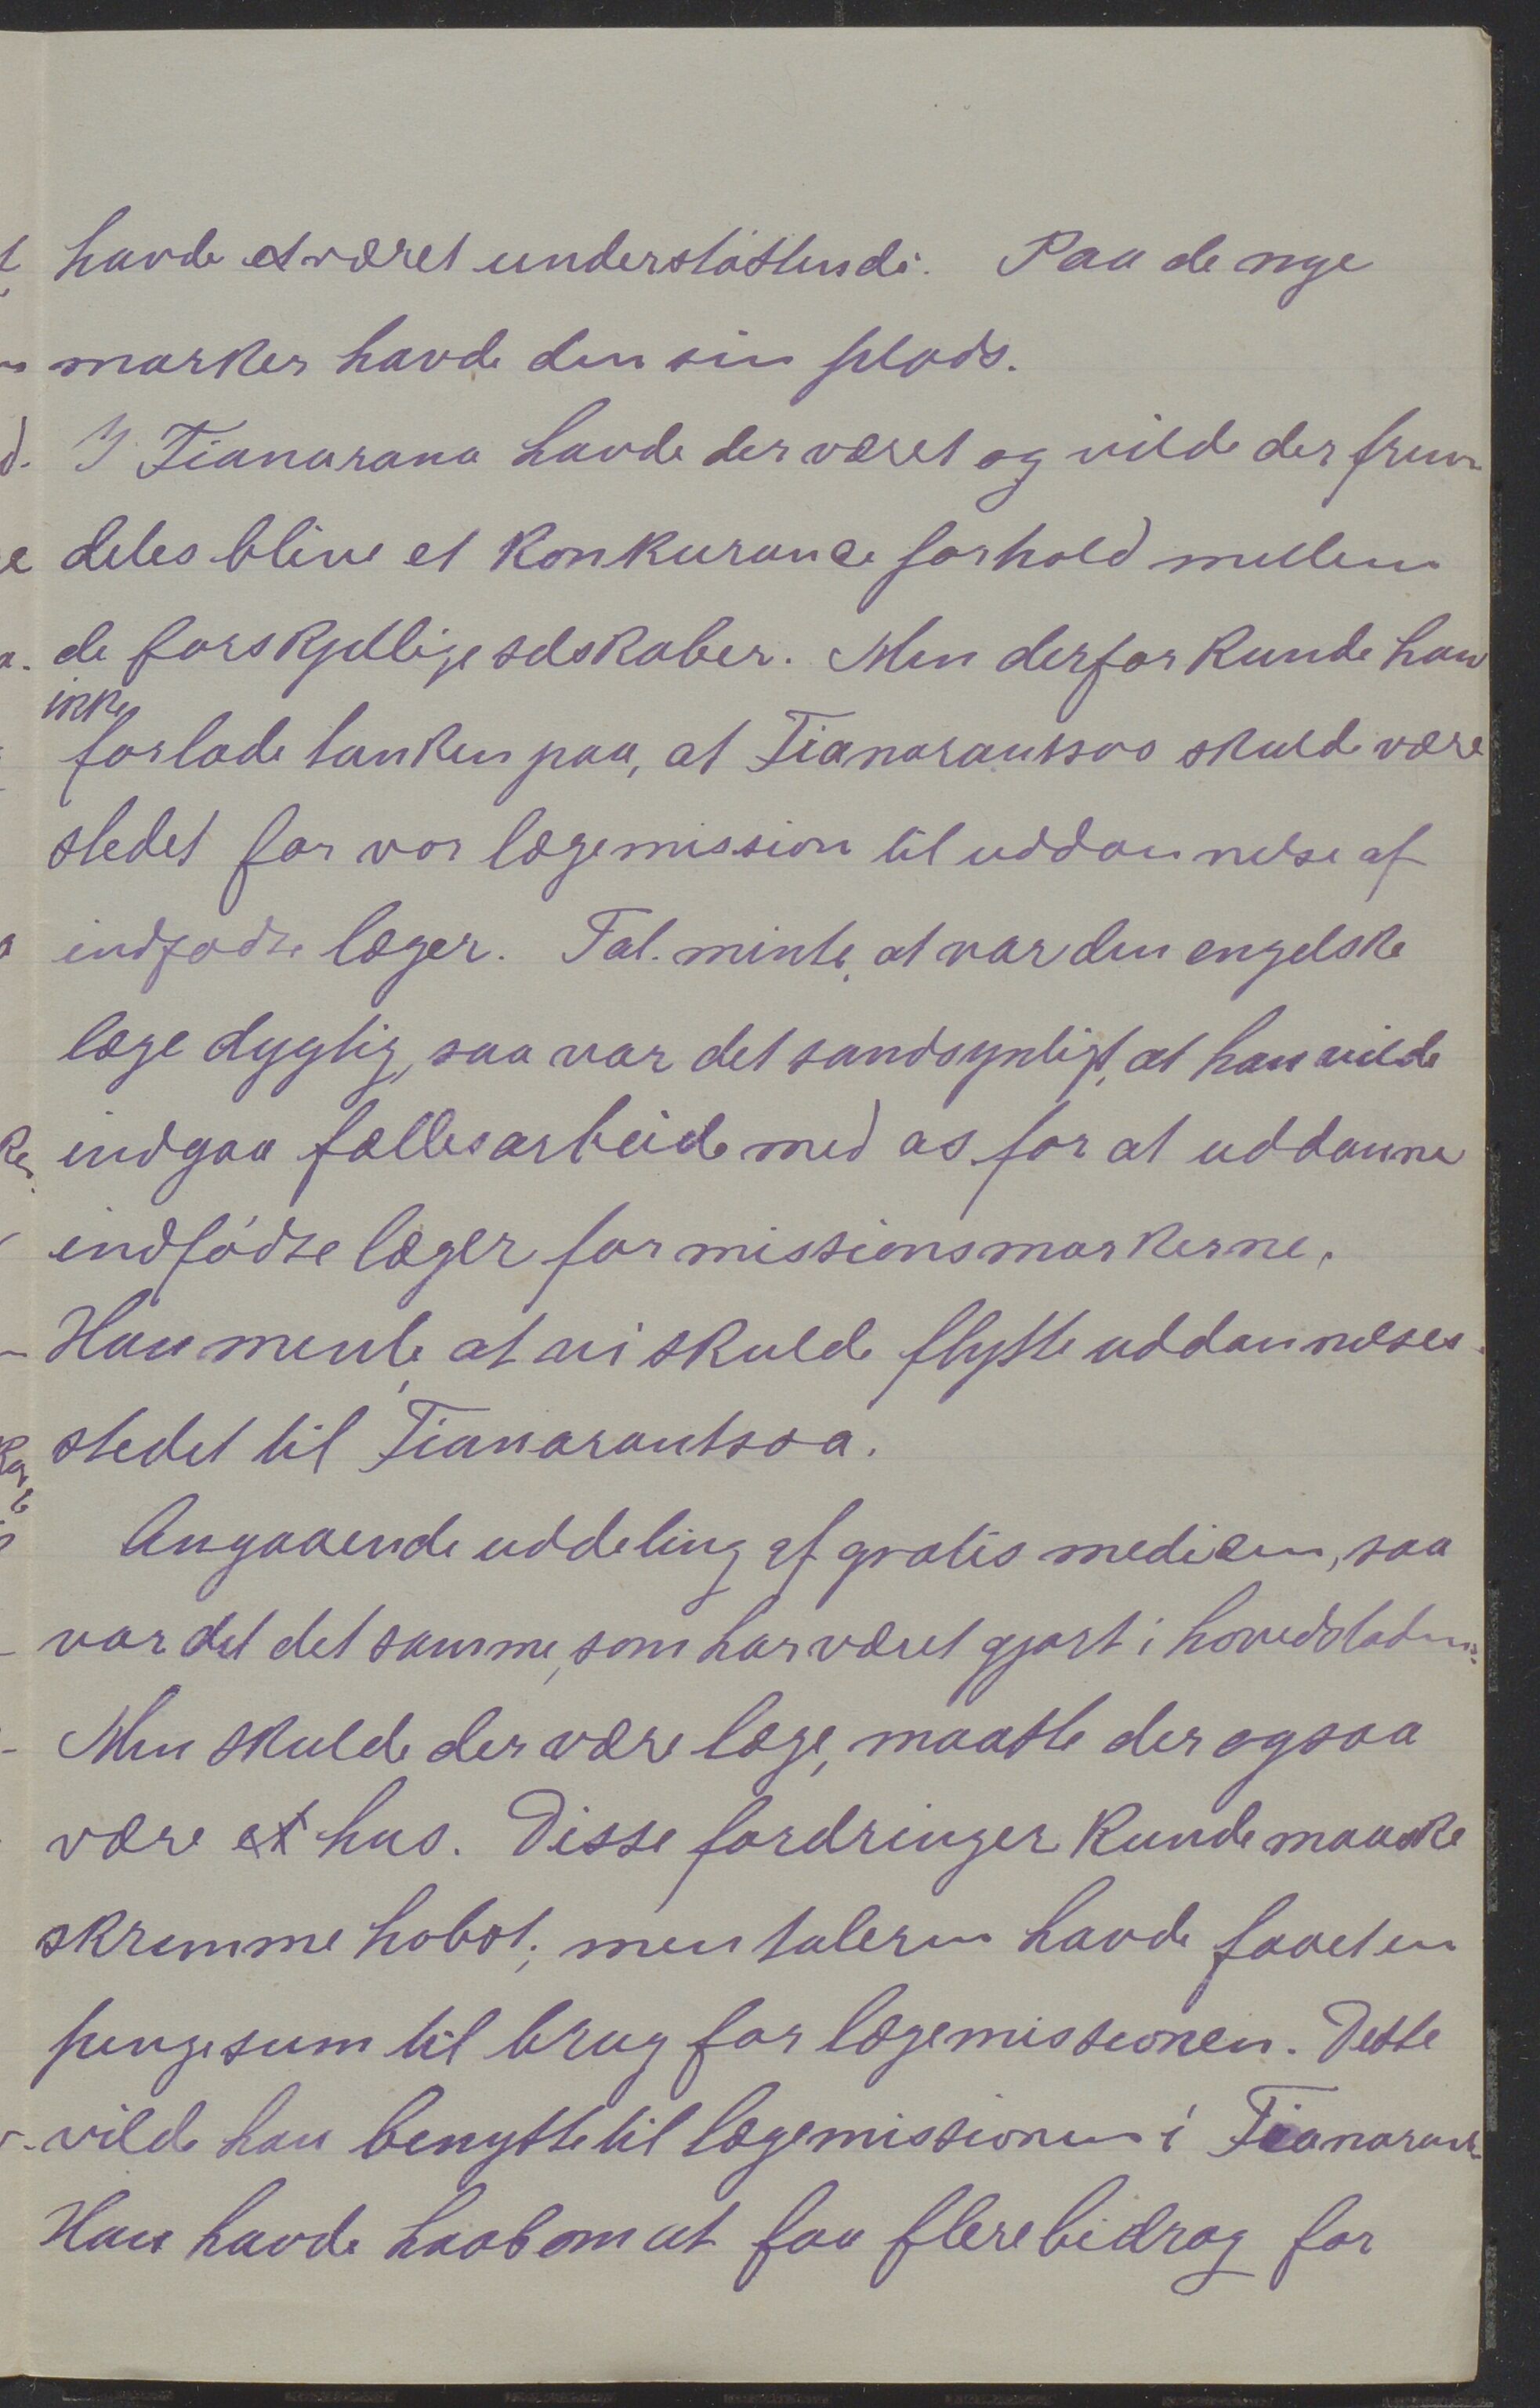 havde et været understöttende. Paa de nye
marker havde den sin plads.
I Fianarana havde der været og vilde der frem
deles blive et konkurance forhold mellem
de forskjellige selskaber. Men derfor kunde han
ikke
forlade tanken paa, at Fianarantsoa skulde være
stedet for vor lægemission til uddannelse af
indfødte læger. Tal. minte, at var den engelske
læge dygtig, saa var det sandsynligt, at han vilde
indgaa fællesarbeide med os for at uddanne
indfödte læger for missionsmarkerne.
Han mente, at vi skulde flytte uddannelses-
stedet til Fianarantsoa.
Angaaende uddeling af gratis medicin, saa
var det det samme, som har været gjort i hovedstaden.
Men skulde der være læge, maatte der ogsaa
være et hus. Disse fordringer kunde maaske
skremme hobst; men taleren havde faaet en
pengesum til brug for lægemissionen. Dette
vilde han benytte til lægemissionen i Fianarant.
Han havde haab om at faa flere bidrag for